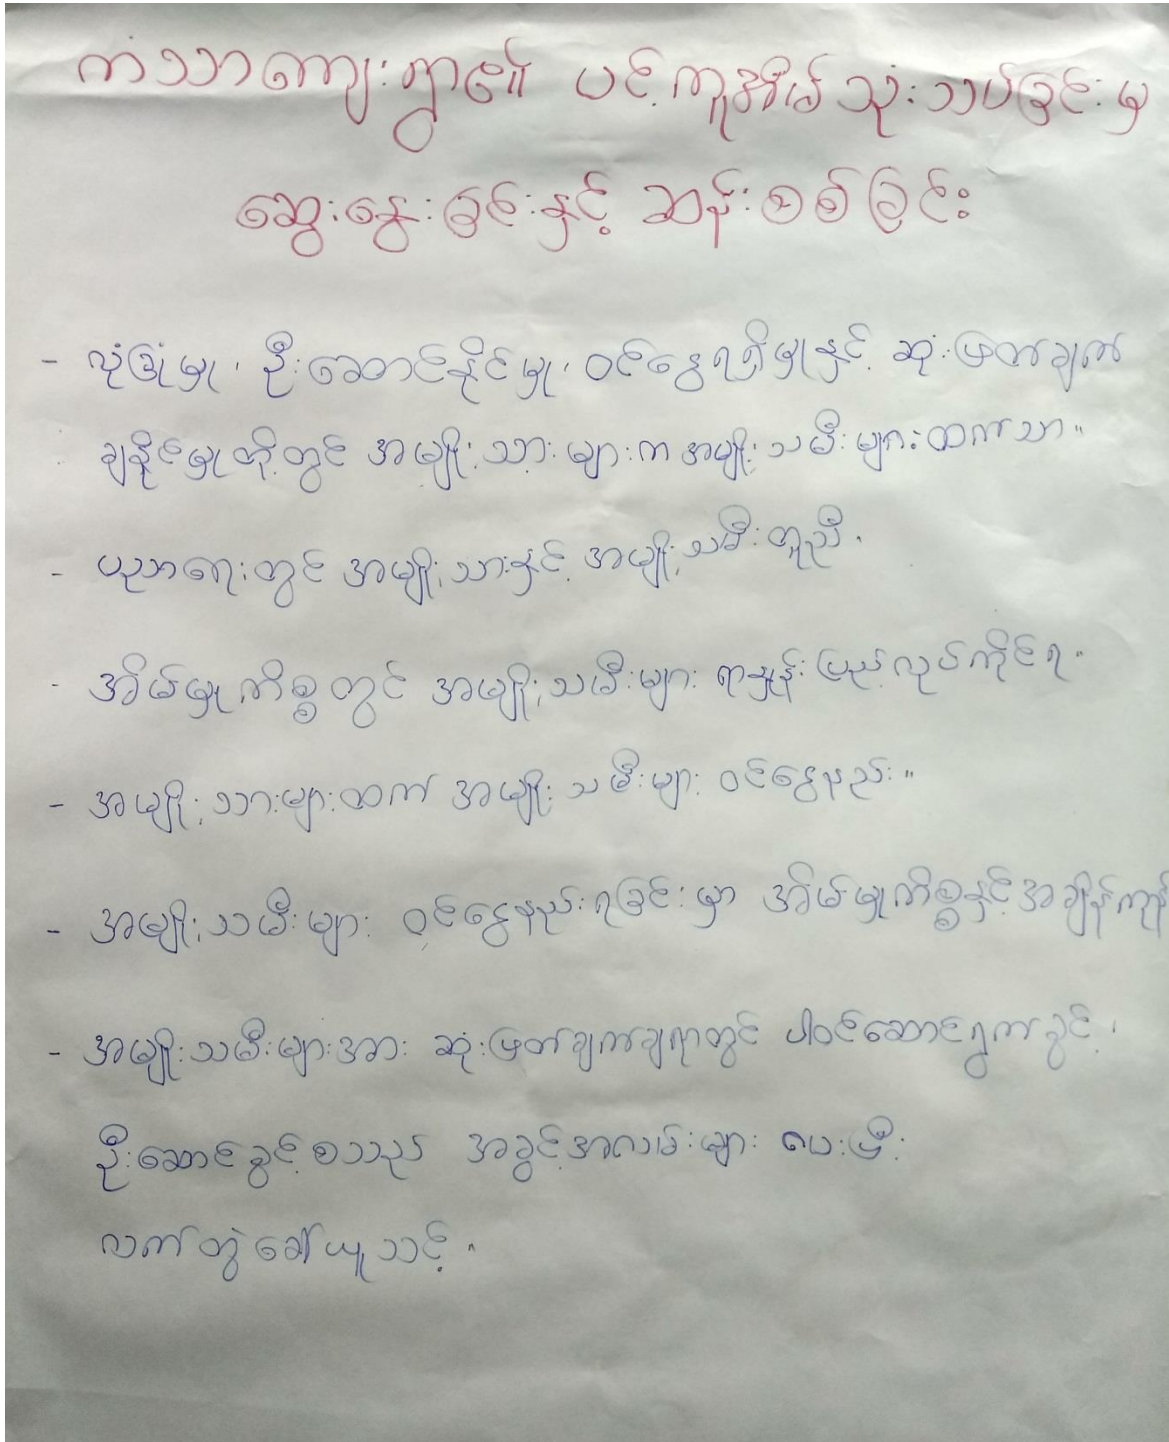 ကံသာကျေးရွာ၏ ပင့်ကူအိမ်သုံးသပ်ခြင်းမှ
ဆွေးနွေးခြင်းနှင့် ဆန်းစစ်ခြင်း
- လုံခြုံမှု၊ ဦးဆောင်နိုင်မှု၊ ဝင်ငွေရရှိမှုနှင့် ဆုံးဖြတ်ချက်
ချနိုင်မှုတို့တွင် အမျိုးသားများက အမျိုးသမီးများထက်သာ။
- ပညာရေးတွင် အမျိုးသားနှင့် အမျိုးသမီးတူညီ။
- အိမ်မှုကိစ္စတွင် အမျိုးသမီးများ ရာနှုန်းပြည့်လုပ်ကိုင်ရ။
- အမျိုးသားများထက် အမျိုးသမီးများ ဝင်ငွေနည်း။
- အမျိုးသမီးများ ဝင်ငွေနည်းရခြင်းမှာ အိမ်မှုကိစ္စနှင့်အချိန်ကုန်
- အမျိုးသမီးများအား ဆုံးဖြတ်ချက်ချရာတွင် ပါဝင်ဆောင်ရွက်ခွင့်၊
ဦးဆောင်ခွင့်စသည် အခွင့်အလမ်းများ ပေးပြီး
လက်တွဲခေါ်ယူသင့်။